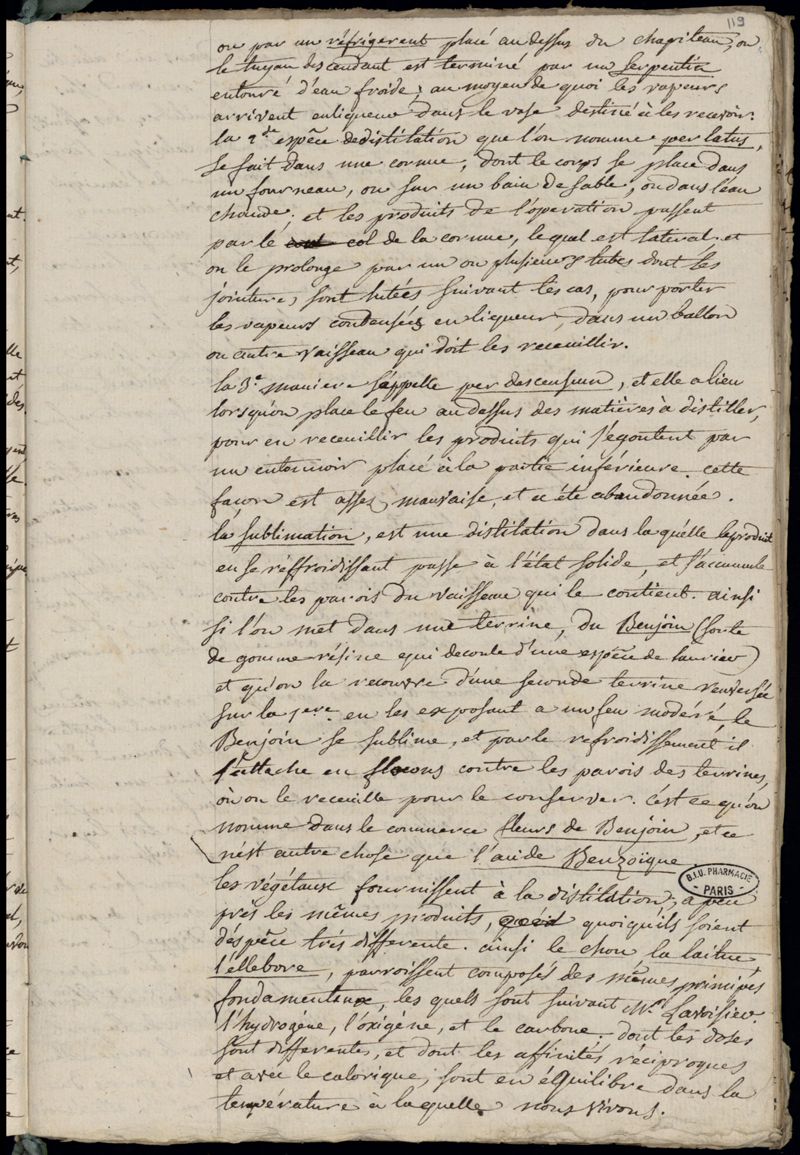 119
ou par un réfrigerent placé au dessus du chapiteau, ou
le tuyau descendant est terminé par un serpentin
entouré d'eau froide; au moyen de quoi les vapeurs
arrivent en liqueur dans le vase destiné à les recevoir.
la 2.de espèce de distilation que l'on nomme per latus,
se fait dans une cornue, dont le corps se place dans
un fourneau, ou sur un bain de sable, ou dans l'eau
chaude; et les produits de l'operation passent
par le col de la cornue, le quel est lateral. et
on le prolonge par un ou plusieurs tubes dont les
jointures, sont lutées suivant les cas, pour porter
les vapeurs condensées en liqueur, dans un ballon
ou autre vaisseau qui doit les receuillir.
la 3.e maniere s'appelle per descensum, et elle a lieu
lorsqu'on place le feu au dessus des matières à distiller,
pour en receuillir les produits qui s'égoutent par
un entonnoir placé à la partie inférieure. cette
façon est assez mauvaise, et a été abandonnée.
la sublimation, est une distilation dans la quelle le produit
en se réffroidissant passe à l'état solide, et s'accumule
contre les parois du vaisseau qui le contient. ainsi
si l'on met dans une terrine, du Benjoin (sorte
de gomme résine qui decoule d'une espèce de laurier)
et qu'on la recouvre d'une seconde terrine renversée
sur la 1ere. en les exposant a un feu modéré, le
Benjoin se sublime, et par le refroidissement il
s'attache en flocons contre les parois des terrines,
où on le receuille pour le conserver. c'est ce qu'on
nomme dans le commerce fleurs de Benjoin, et ce
n'est autre chose que l'acide Benzoïque
B.I.U. PHARMACIE
PARIS
les végétaux fournissent à la distilation, a peu
près les mêmes produits, quoiqu'ils soient
d'éspèce très differente. ainsi le chou la laitue
l'ellebore, parroissent composés des mêmes principes
fondamentaux, les quels sont suivant Mr. Lavoisier
l'hydrogène, l'oxigène, et le carbone; dont les doses
sont differentes, et dont les affinités réciproques
et avec le calorique, sont en équilibre dans la
température à laquelle nous vivons.